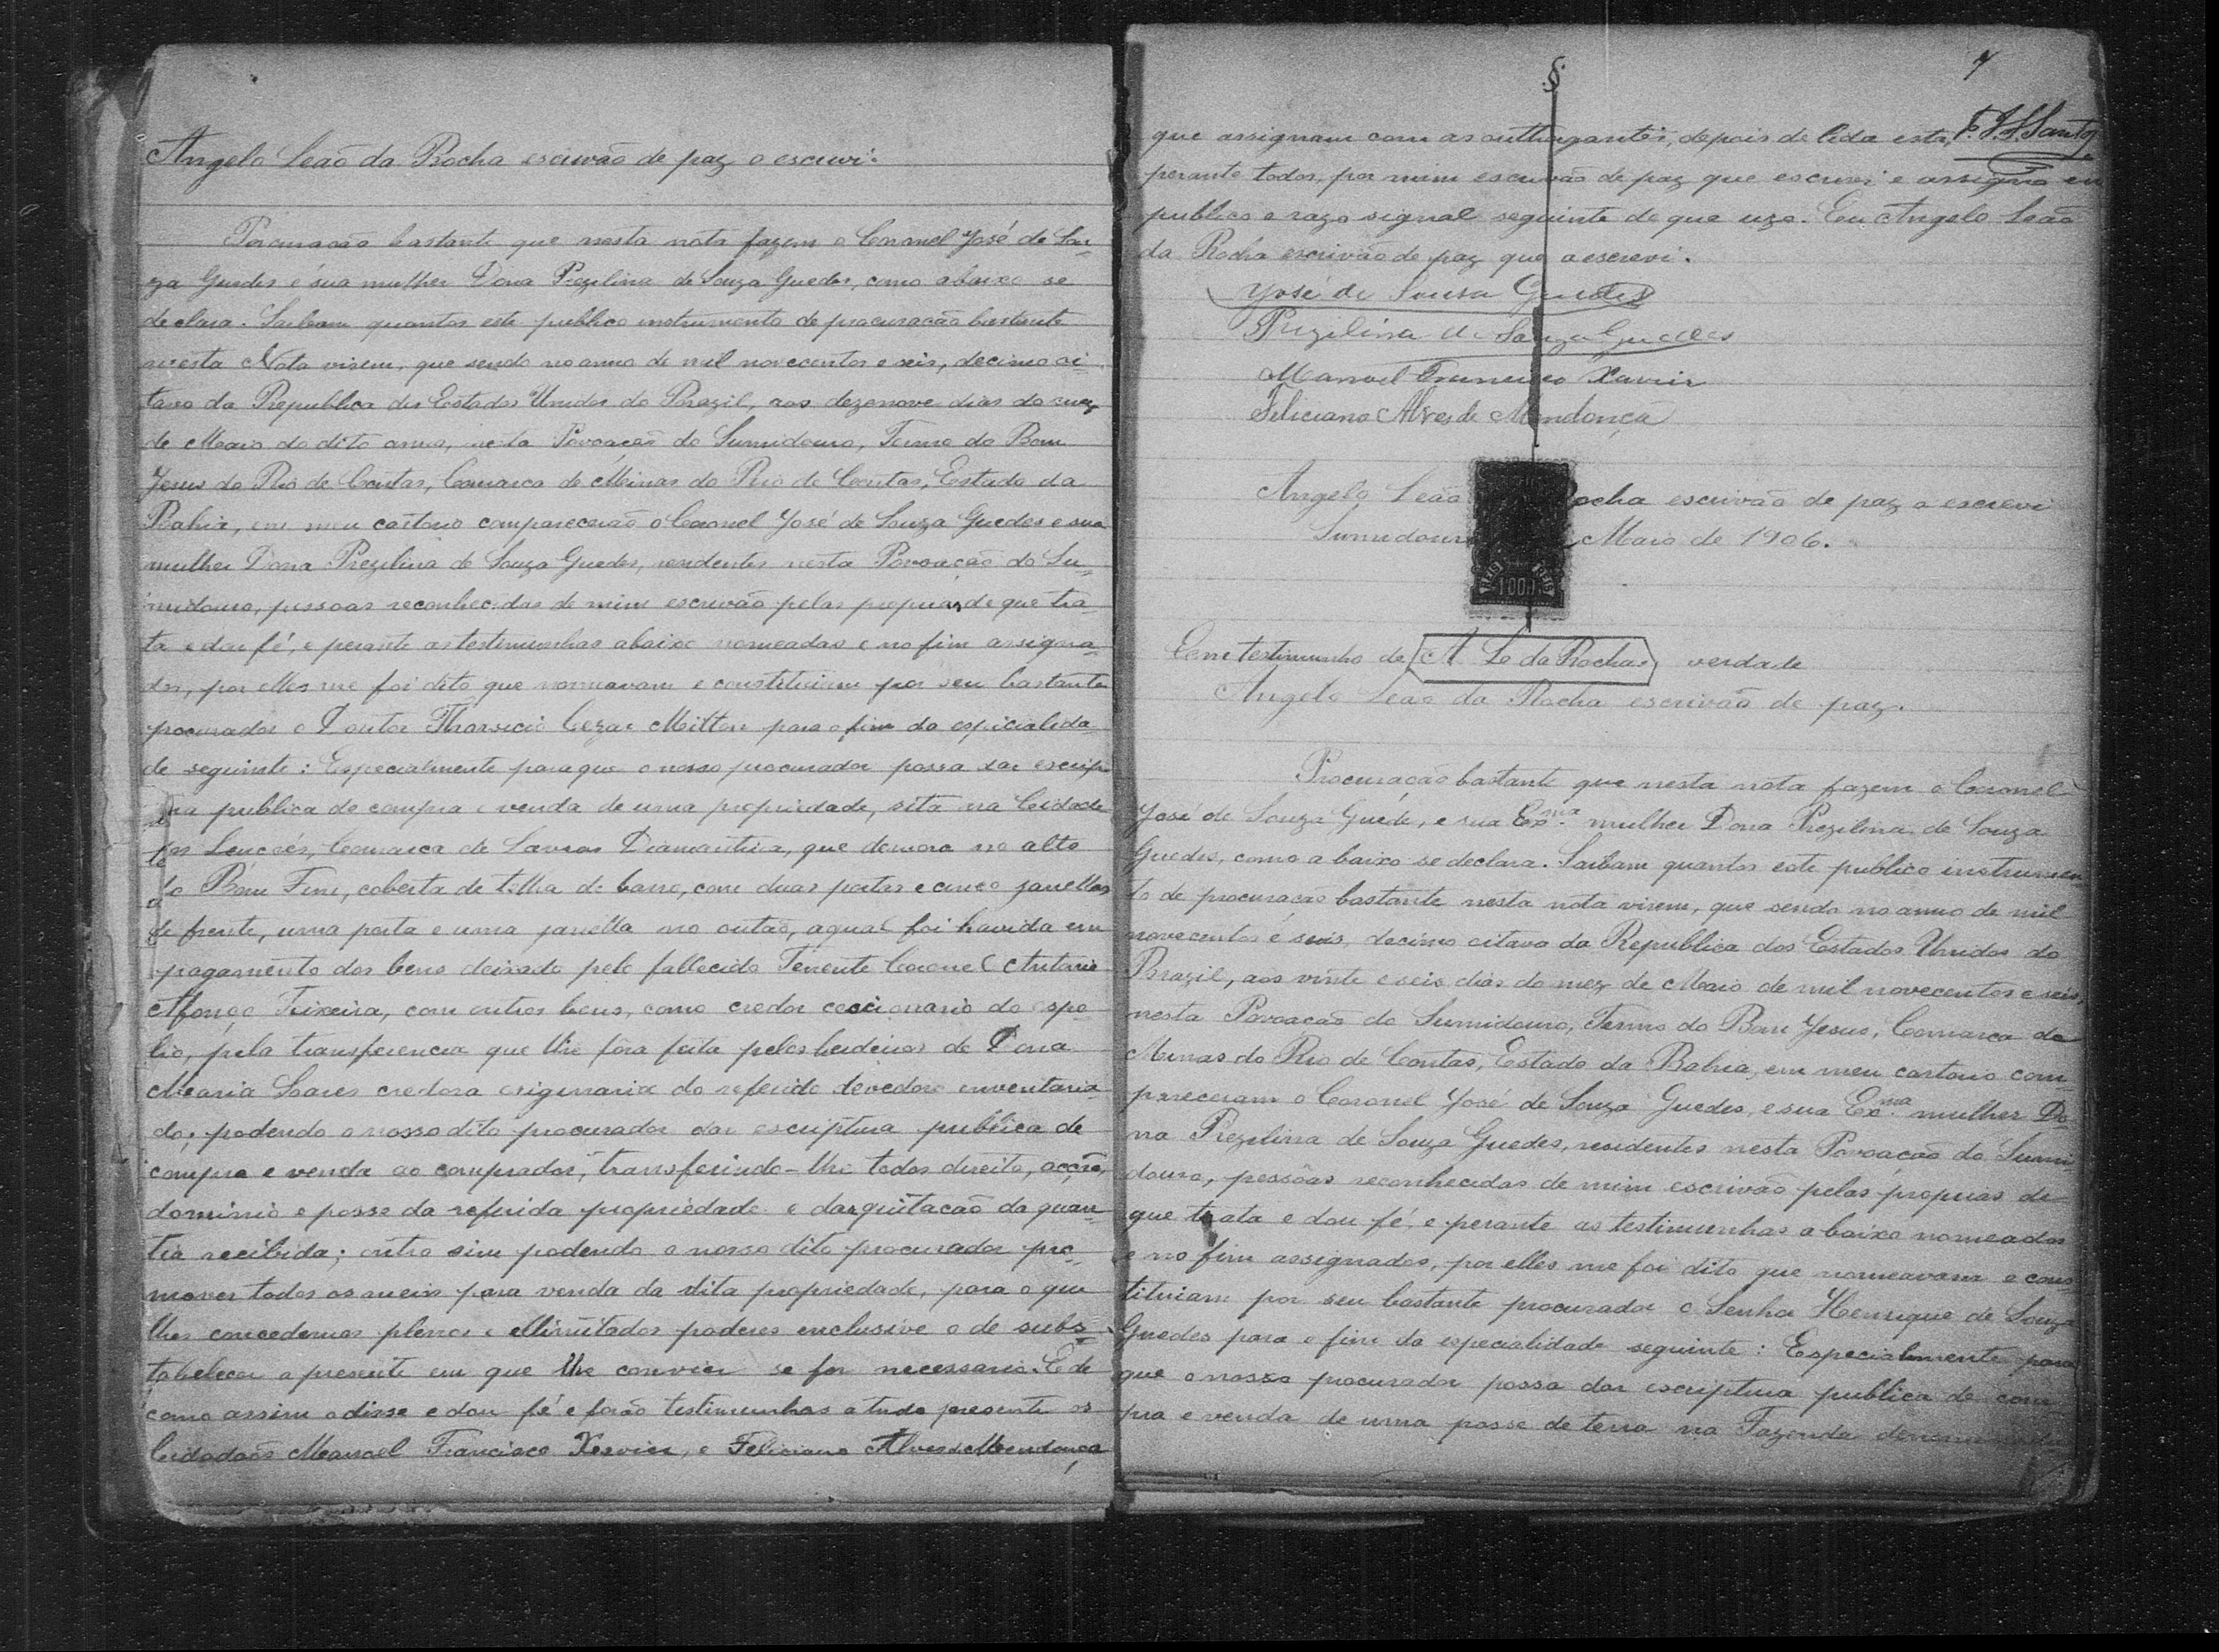 Angelo Leão da Rocha escrivão de paz o escrevi.
Porcuração bastante que nesta nota fazem o Coronel José de Sou-
za Guedes e sua mulher Dona Prezilina de Souza Guedes, como abaixo se
declara. Saibam quantos este publico instrumento de procuração bastante
nesta Nota virem, que sendo no anno de mil novecentos e seis, decimo oi
tavo da Republica dos Estados Unidos do Brazil, aos dezenove dias do mez
de Maio do dito anno, nesta Povoação do Sumidouro, Termo do Bom
Jesus do Rio de Contas, Comarca de Minas do Rio de Contas, Estado da
Bahia, em meu cartorio comparecerão o Coronel José de Souza Guedes e sua
mulher Dona Prezilina de Souza Guedes, residentes nesta Povoação do Su-
midouro, pessoas reconhecidas de mim escrivão pelas proprias de que tra-
ta e dou fé, e perante as testimunhas abaixo nomeadas e no fim assigna-
das, por elles me foi dito que nomeavam e constituiam por seu bastante
procurador o Doutor Tharsicio Cezar Milton para o fim da espicialida-
de seguinte: Especialmente para que o nosso procurador possa dar escrip-
ra publica de compra e venda de uma propriedade, sita na Cidade
dos Lençóes, Comarca de Lavras Diamantina, que demora no alto
do Bom Fim, coberta de telha de barro, com duas portas e cinco janellas
de frente, uma porta e uma janella no outão, a qual foi havida em
pagamento dos bens deixado pelo fallecido Tenente Coronel Antonio
Afonço Teixeira, com outros bens, como credor cecionario do espo-
lio, pela transferencia que lhe fôra feita pelos herdeiros de Dona
Maria Soares credora originaria do referido devedor inventaria-
do; podendo o nosso dito procurador dar escriptura publica de
compra e venda ao comprador, transferindo-lhe todos direito, acção,
dominio e posse da referida propriedade e dar quitação da quan-
tia recibida; outro sim podendo o nosso dito procurador pro-
mover todos os meios para venda da dita propriedade, para o que
lhes concedemos plenos e illimitados poderes inclusive o de subs-
tabelecer a presente em que lhe convier se for necessario. E de
como assim o disse e dou fé e forão testimunhas a tudo presente os
Cidadaõs Manoel Francisco Xavier, e Feliciano Alves de Mendonça
7
F. J. S. Santos
que assignam com as outhurgantes, depois de lida esta,
perante todos, por mim escrivão de paz que escrevi e assigno em
publico e razo signal seguinte de que uzo. Eu Angelo Leão
da Rocha escrivão de paz que o escrevi.
José de Sousa Guedes
Prezilina de Souza Guedes
Manoel Francisco Xavier
Feliciano Alves de Mendonça
Angelo Leão Rocha escrivão de paz o escrevi
Sumidouro Maio de 1906.
REIS 1000 REIS
Em testimunho de A Le da Rocha verdade
Angelo Leão da Rocha escrivão de paz.
Procuração bastante que nesta nota fazem o Coronel
José de Souza Guede, e sua Ex.ma mulher Dona Prezilina de Souza
Guedes, como a baixo se declara. Saibam quantos este publico instrumen-
to de procuração bastante nesta nota virem, que sendo no anno de mil
novecentos e seis, decimo oitavo da Republica dos Estados Unidos do
Brazil, aos vinte e seis dias do mez de Maio de mil novecentos e seis,
nesta Povoação do Sumidouro, Termo do Bom Jesus, Comarca de
Minas do Rio de Contas, Estado da Bahia, em meu cartorio com-
pareceram o Coronel José de Souza Guedes, e sua Ex.ma mulher Do-
na Prezilina de Souza Guedes, residentes nesta Povoação do Sumi-
douro, pessôas reconhecidas de mim escrivão pelas proprias de
que trata e dou fé, e perante as testimunhas a baixo nomeadas
e no fim assignados, por elles me foi dito que nomeavam e cons-
tituiam por seu bastante procurador o Senhor Henrique de Souza
Guedes para o fim da especialidade seguinte: Especialmente para
que o nosso procurador possa dar escriptura publica de com-
pra e venda de uma posse de terra na Fazenda denominada